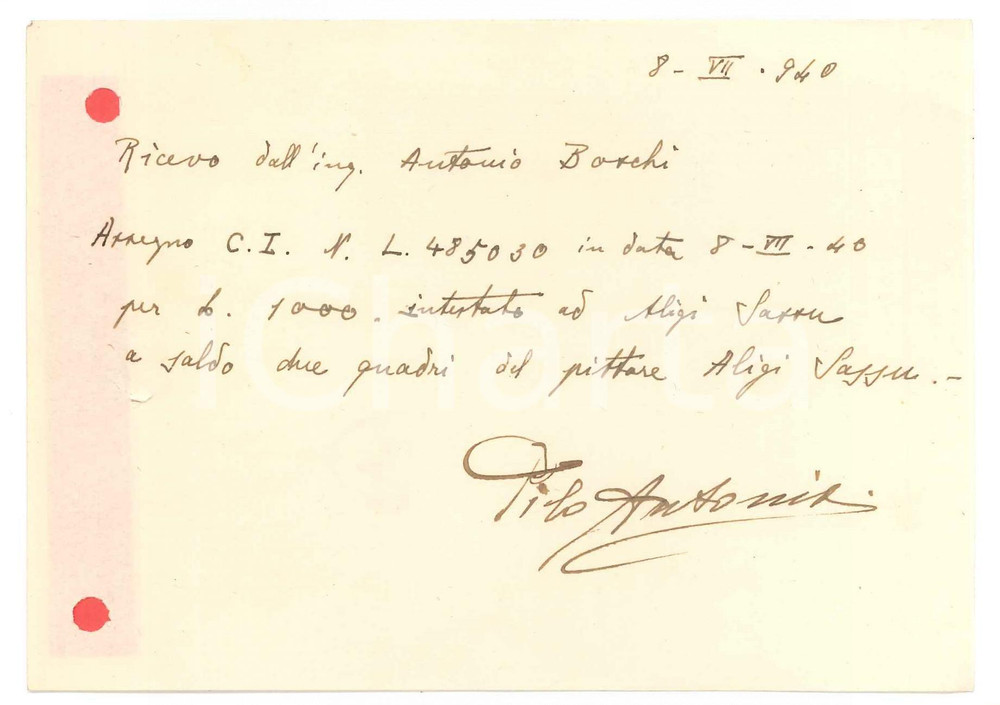 8 - VII . 940
Ricevo dall'ing. Antonio Boschi
Assegno C.I. N. L. 485030 in data 8 - VII - 40
per L. 1000. intestato ad Aligi Sassu
a saldo due quadri del pittore Aligi Sassu. -
Pilo Antonio
iCharta